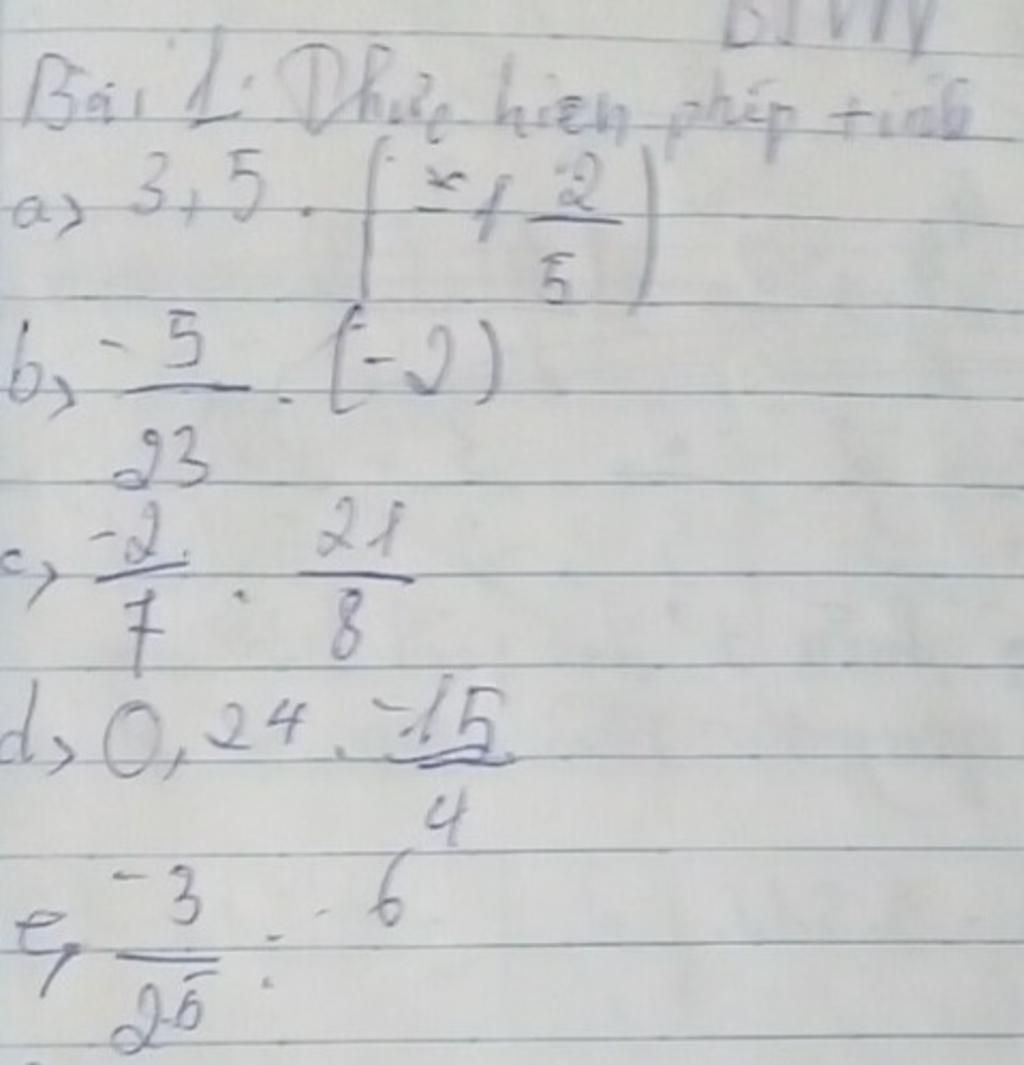 Bài 1: Thực hiện phép tính
a) 3,5 . ( - 1 2/5 )
b) -5/23 . (-2)
c) -2/7 . 21/8
d) 0,24 . -15/4
e) -3/25 : 6